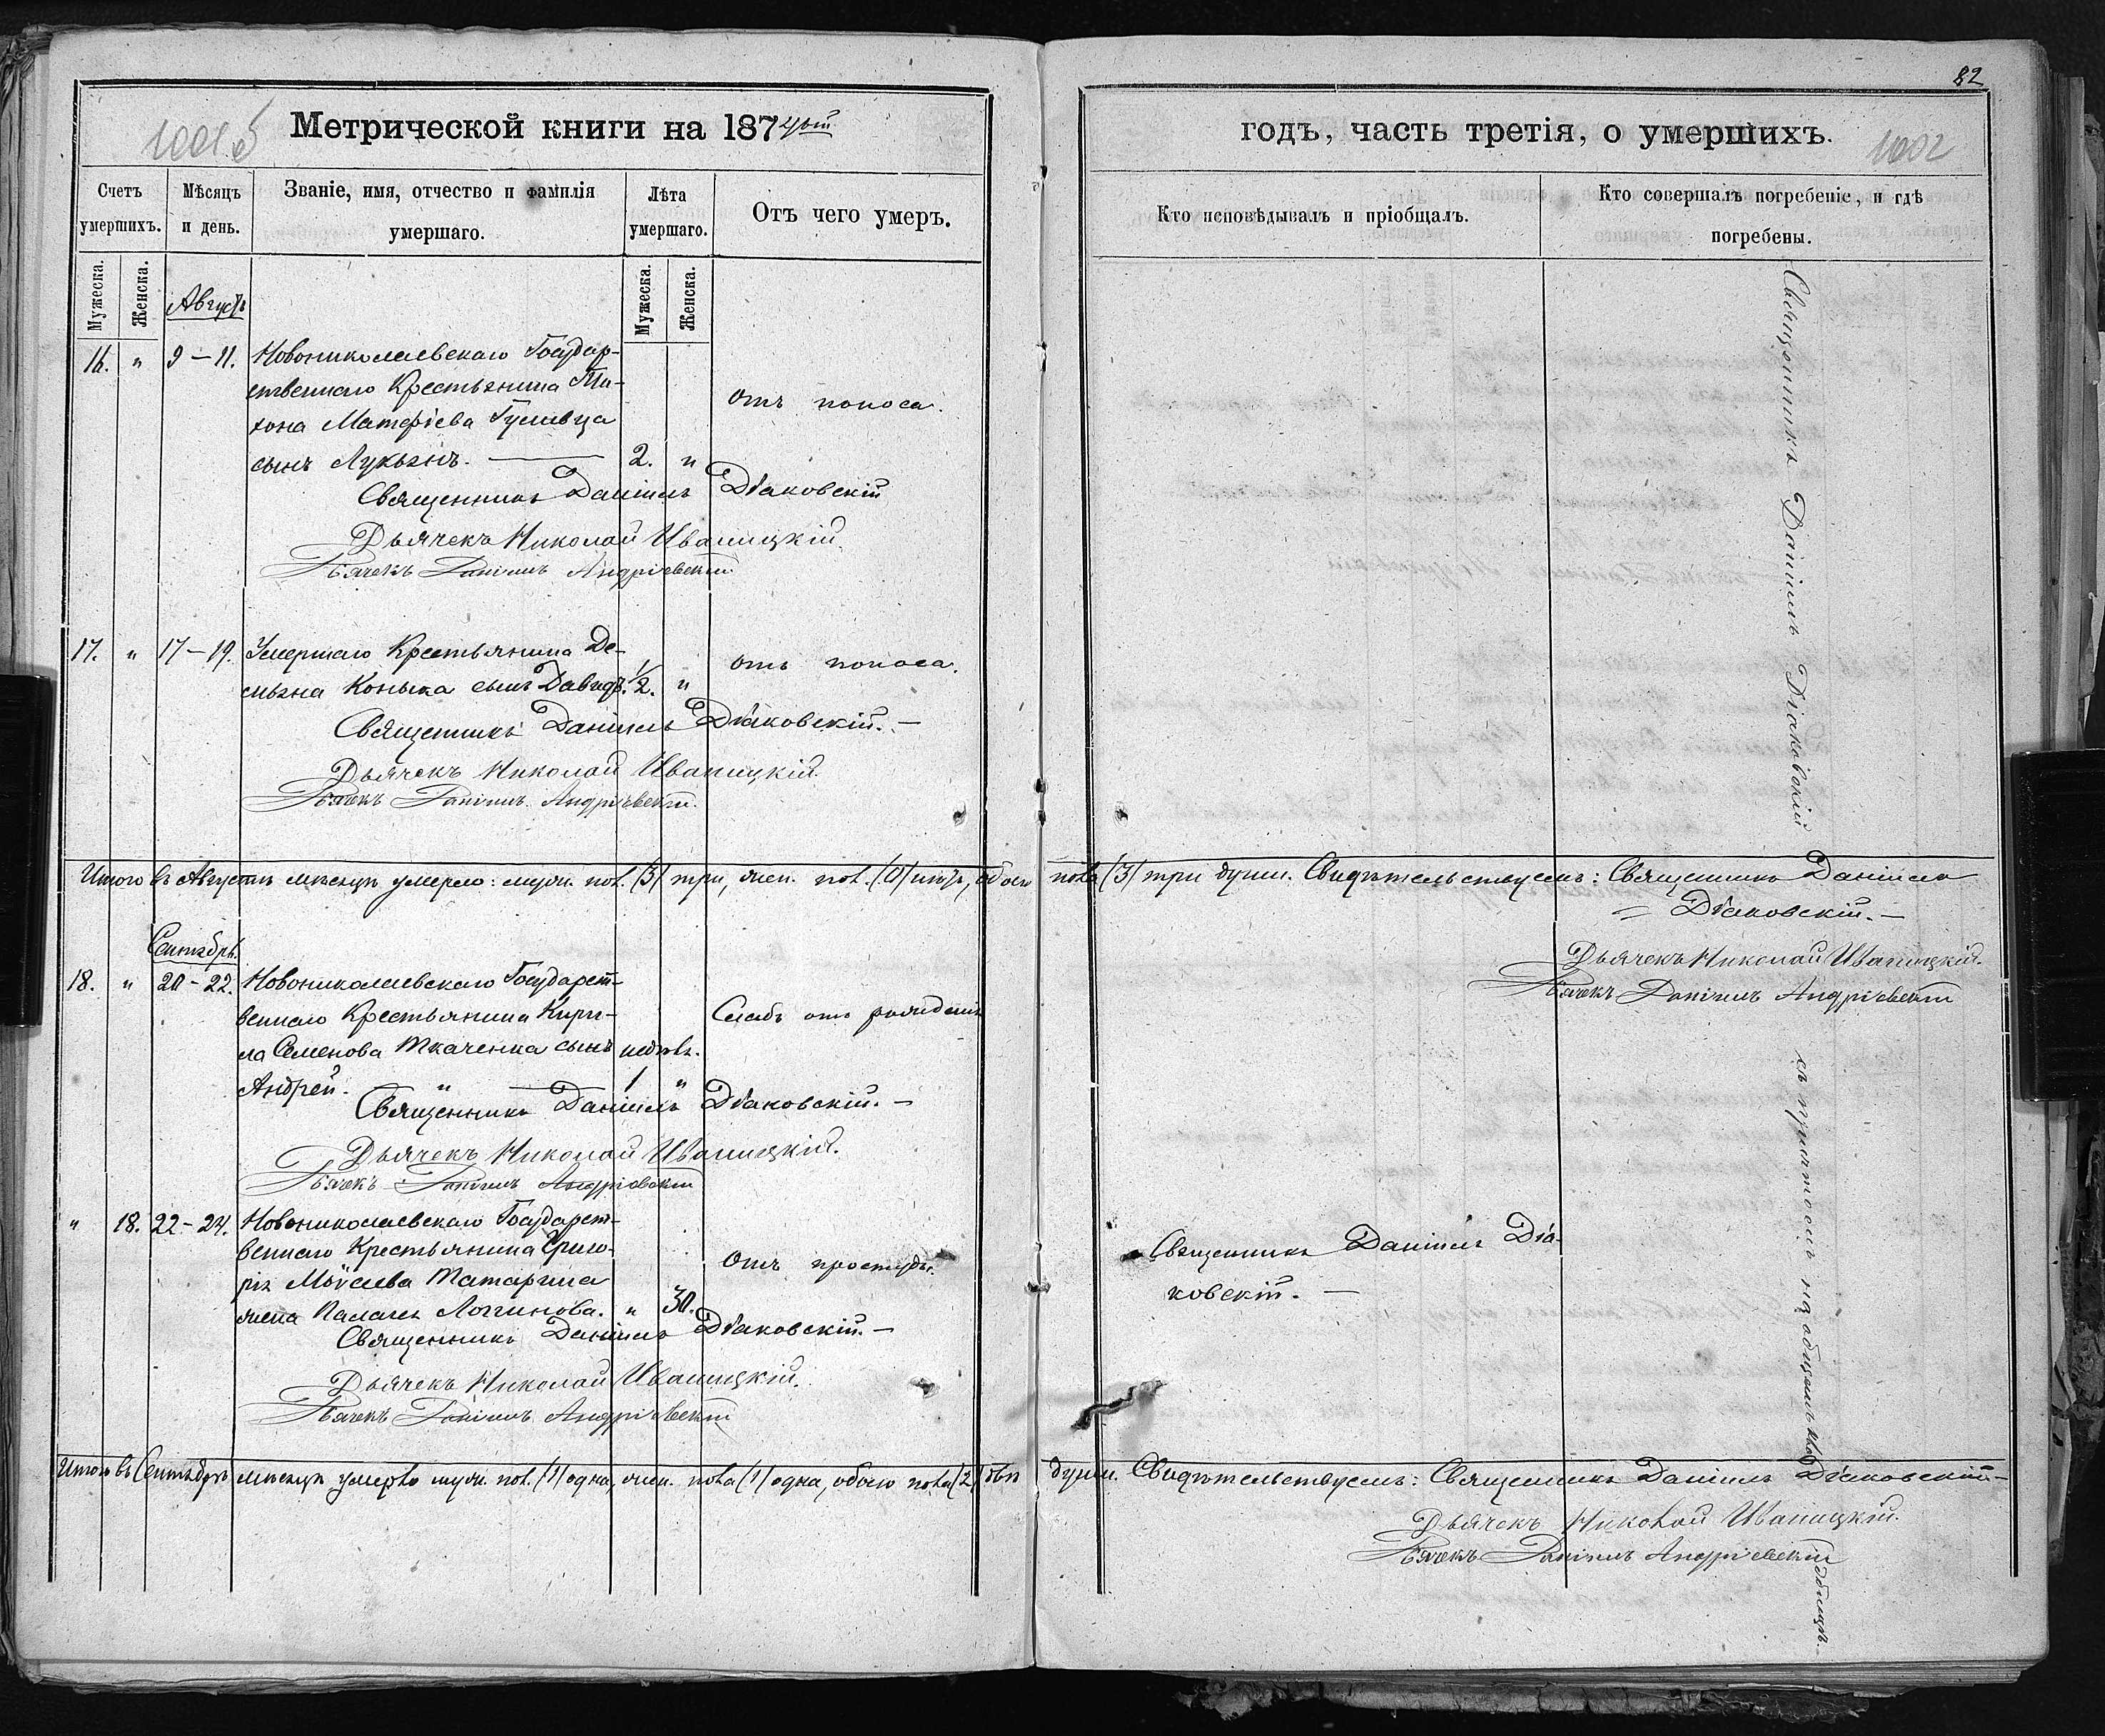 82
1001б
Метрической книги на 1874ый
годъ, часть третія, о умершихъ.
1002
Счетъ умершихъ.
Мѣсяцъ и день.
Званіе, имя, отчество и фамилія умершаго.
Лѣта умершаго.
Отъ чего умеръ.
Кто исповѣдывалъ и пріобщалъ.
Кто совершалъ погребеніе, и гдѣ погребены.
Мужеска.
Женска.
Мужеска.
Женска.
Августъ
16. " 9-11. Новониколаевскаго Государ-
ственнаго Крестьянина Ти-
хона Матфіева
сынъ Лукьянъ. — 2. "
Отъ поноса.
Священникъ Даніилъ Діаковскій
Дьячекъ Николай Иваницкій.
Дьячекъ Даніилъ Андріевскій
17. " 17-19. Умершаго Крестьянина Де-
мьяна Конька сынъ Давидъ. 1/2. "
отъ поноса.
Священникъ Даніилъ Діаковскій. —
Дьячекъ Николай Иваницкій.
Дьячекъ Даніилъ Андріевскій.
Итого въ Августѣ мѣсяцѣ умерло: муж. пол. (3) три, жен. пол. (0) нютъ, обоего пола (3) три души. Свидѣтельствуемъ: Священникъ Даніилъ
= Діаковскій. —
Дьячекъ Николай Иваницкій.
Дьячекъ Даніилъ Андріевскій
Сентябрь.
18. " 20-22. Новониколаевскаго Государст-
веннаго Крестьянина Кири-
ла Семенова Ткаченка сынъ недѣль.
Андрей. " — 1 "
Слабъ отъ рожденія
Священникъ Даніилъ Діаковскій. —
Дьячекъ Николай Иваницкій.
Дьячекъ Даніилъ Андріевскій
" 18. 22-24. Новониколаевскаго Государст-
веннаго Крестьянина Григо-
рія Моѵсеева Татарина
жена Палагея Логгинова. " 30.
Отъ простуды.
Священникъ Даніилъ Діа-
ковскій. —
Священникъ Даніилъ Діаковскій. —
Дьячекъ Николай Иваницкій.
Дьячекъ Даніилъ Андріевскій
Итого въ Сентябрѣ мѣсяцѣ умерло муж. пол. (1) одна, жен. пола (1) одна, обоего пола (2) двѣ души. Свидѣтельствуемъ: Священникъ Даніилъ Діаковскій —
Дьячекъ Николай Иваницкій.
Дьячекъ Даніилъ Андріевскій
Священникъ Даніилъ Діаковскій съ причтомъ на общемъ кладбищѣ.